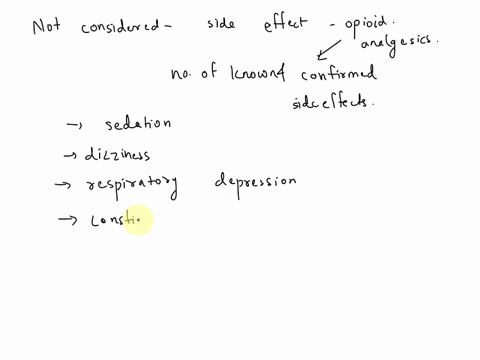 Not considered - side effect - opioid.
analgesics.
no. of known & confirmed
side effects.
→ sedation
→ dizziness
→ respiratory depression
→ consti